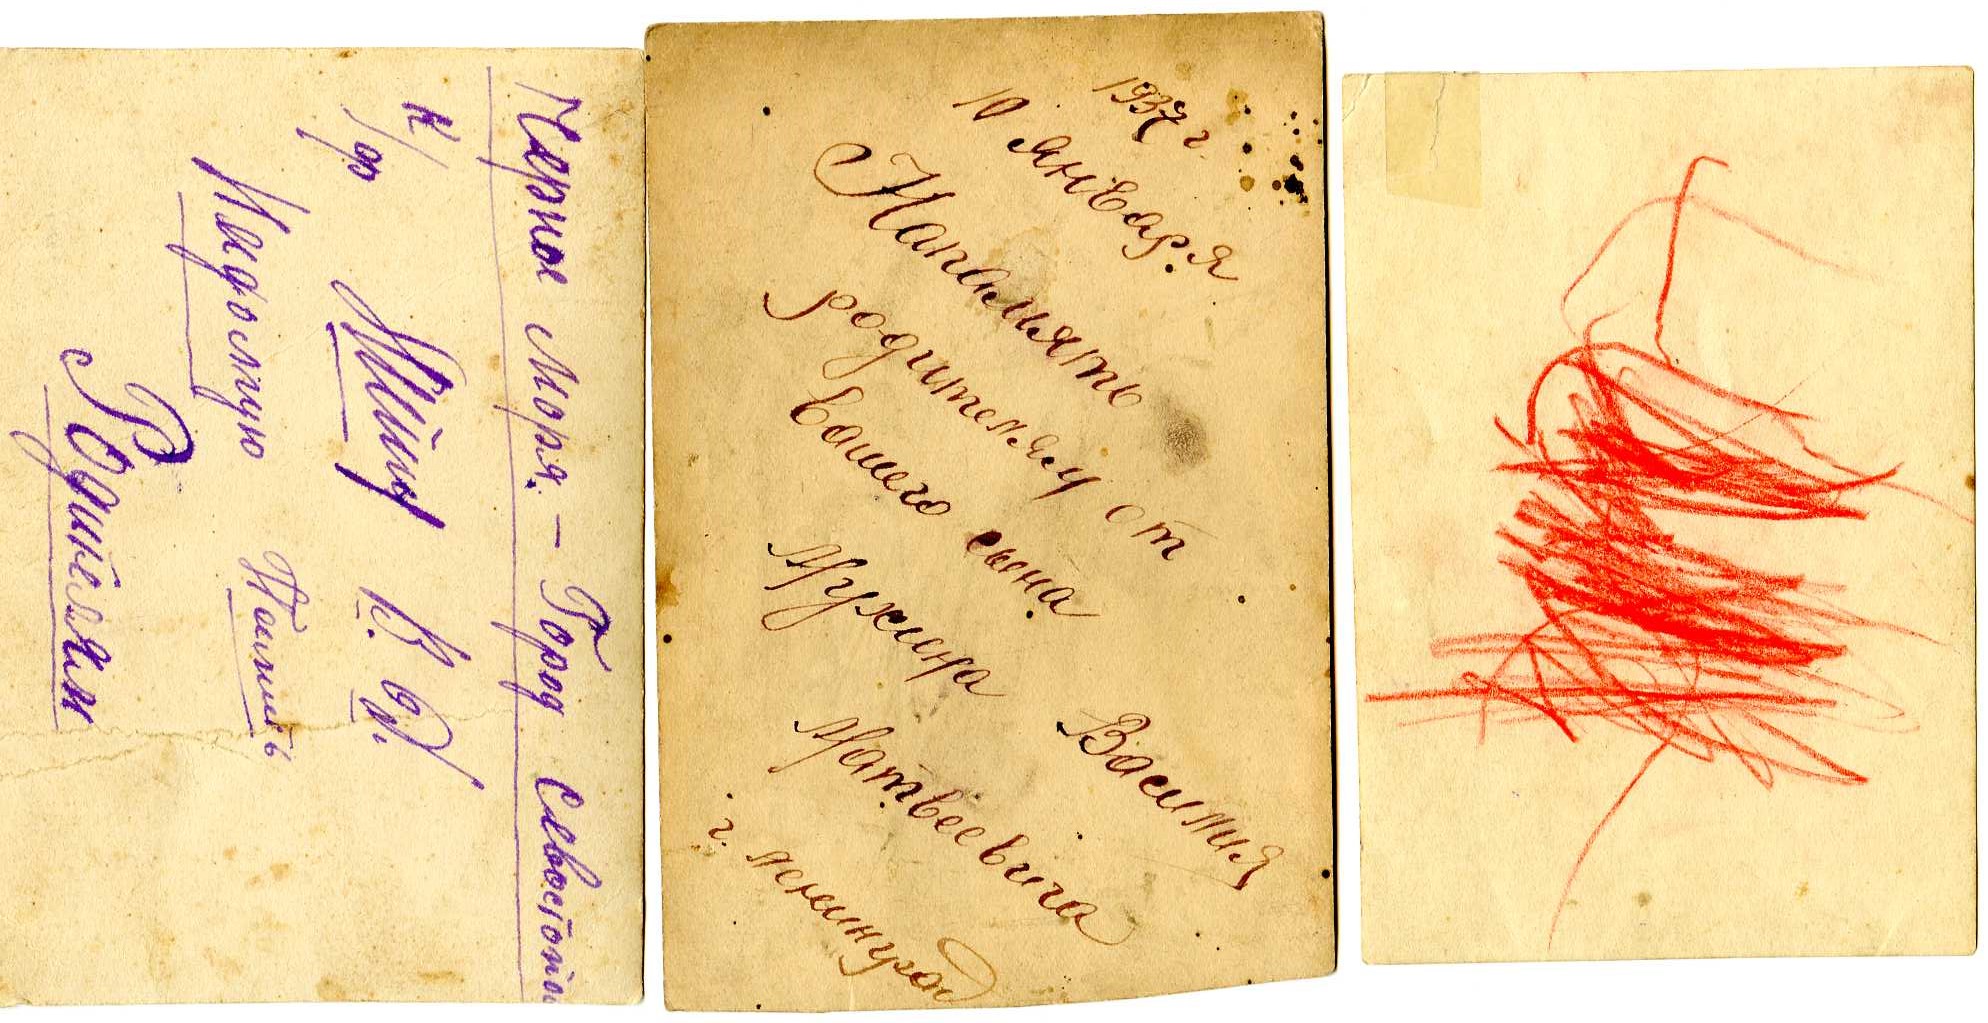 Черное Моря. – Город Севостопо
к/ф
В. И.
Память
Родителям
1937 г.
10 января
Напамять
родителям от
Вашего сына
Мухина Василия
Матвеевича
г. Ленинград